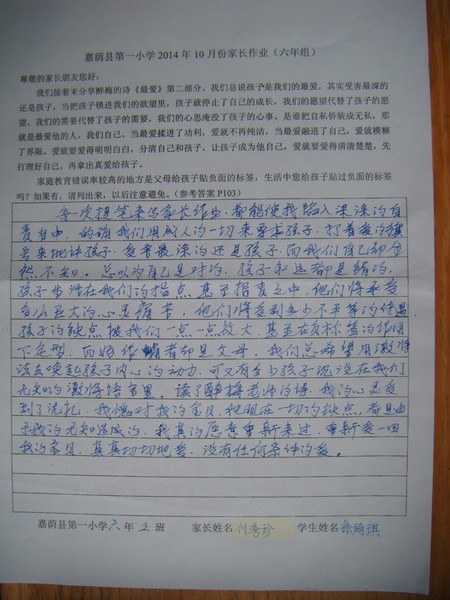 嘉荫县第一小学 2014 年 10 月份家长作业（六年组）
尊敬的家长朋友您好：
我们接着来分享醉梅的诗《最爱》第二部分，我们总说孩子是我们的最爱，其实受害最深的
还是孩子，当把孩子镇进我们的欲望里，孩子就停止了自己的成长，我们的愿望代替了孩子的愿
望，我们的需要代替了孩子的需要，我们的心思淹没了孩子的心事，是谁把自私伪装成无私，那
就是最爱他的人，我们自己，当最爱揉进了功利，爱就不再纯洁，当最爱融进了自己，爱就模糊
了界限，爱就要爱得明明白白，分清自己和孩子，让孩子成为他自己，爱就要爱得清清楚楚，先
打理好自己，再拿出真爱给孩子。
家庭教育错误率较高的地方是父母给孩子贴负面的标签，生活中您给孩子贴过负面的标签
吗？如果有，请列出来，以后注意避免。（参考答案 P103）
每一次提笔来写家长作业，都能使我陷入深深的自
责自中，的确我们用成人的一切来孩子，打着爱的旗
号来地诀孩子，受害最深的还是孩子，而我们自己却全
然不知。总以为自己是对的，孩子永远都是错的，
孩子生活在我们的指点，甚至指责之中，他们将承受
多么巨大的心灵痛苦，他们将受到多少不平等的待遇
孩子的缺点被我们一点一点放大，甚至在负标签的作用
下定型，而始作俑者却是父母，我们总希望用激将
法去唤起孩子内心的动力，可又有多少孩子沉没在我们
无知的激将语言里。读了醉梅老师的诗，我的心灵受
到了洗礼，我愧对我的宝贝，他现在一切的缺点，都是由
于我的无知造成的，我真的愿意重新来过，重新爱一回
我的宝贝，真真切切地爱，没有任何条件的爱。
嘉荫县第一小学六年五班 家长姓名 付秀珍 学生姓名